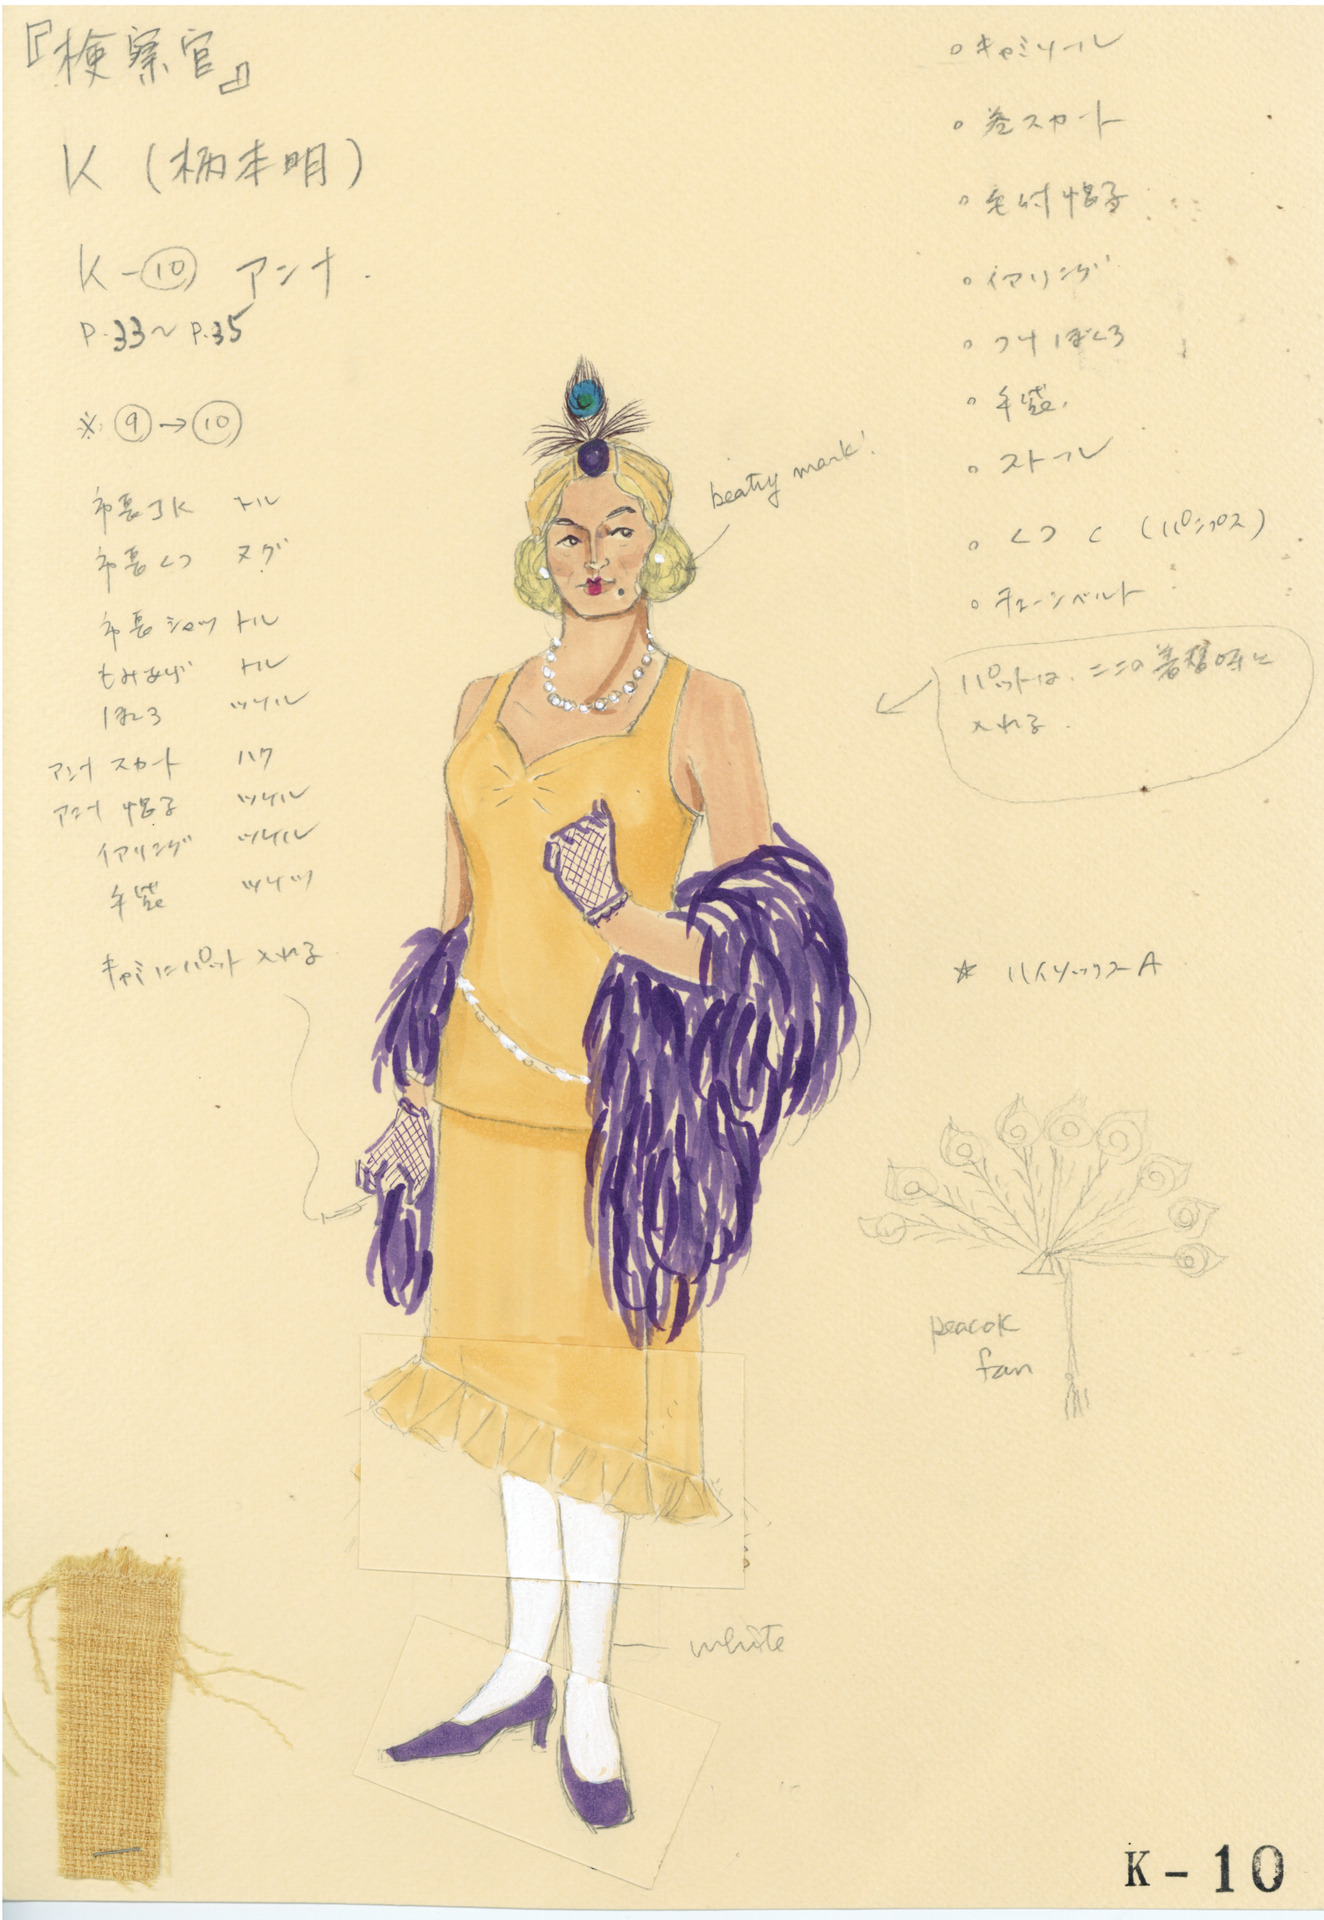 『検察官』
K (柄本明)
K-⑩ アンナ.
P.33〜P.35
※ ⑨→⑩
市長JK トル
市長くつ ヌグ
市長シャツ トル
もみあげ トル
ほくろ ツケル
アンナ スカート ハク
アンナ 帽子 ツケル
イアリング ツケル
手袋 ツケル
キャミにパット入れる
beatiy mark!
○ キャミソール
○ 巻スカート
○ 毛付帽子
○ イアリング
○ つけぼくろ
○ 手袋.
○ ストール
○ くつ C (パンプス)
○ チェーンベルト
パットは、ここの着替時に
入れる.
☆ ハイソックスA
peacok
fan
white
K-10